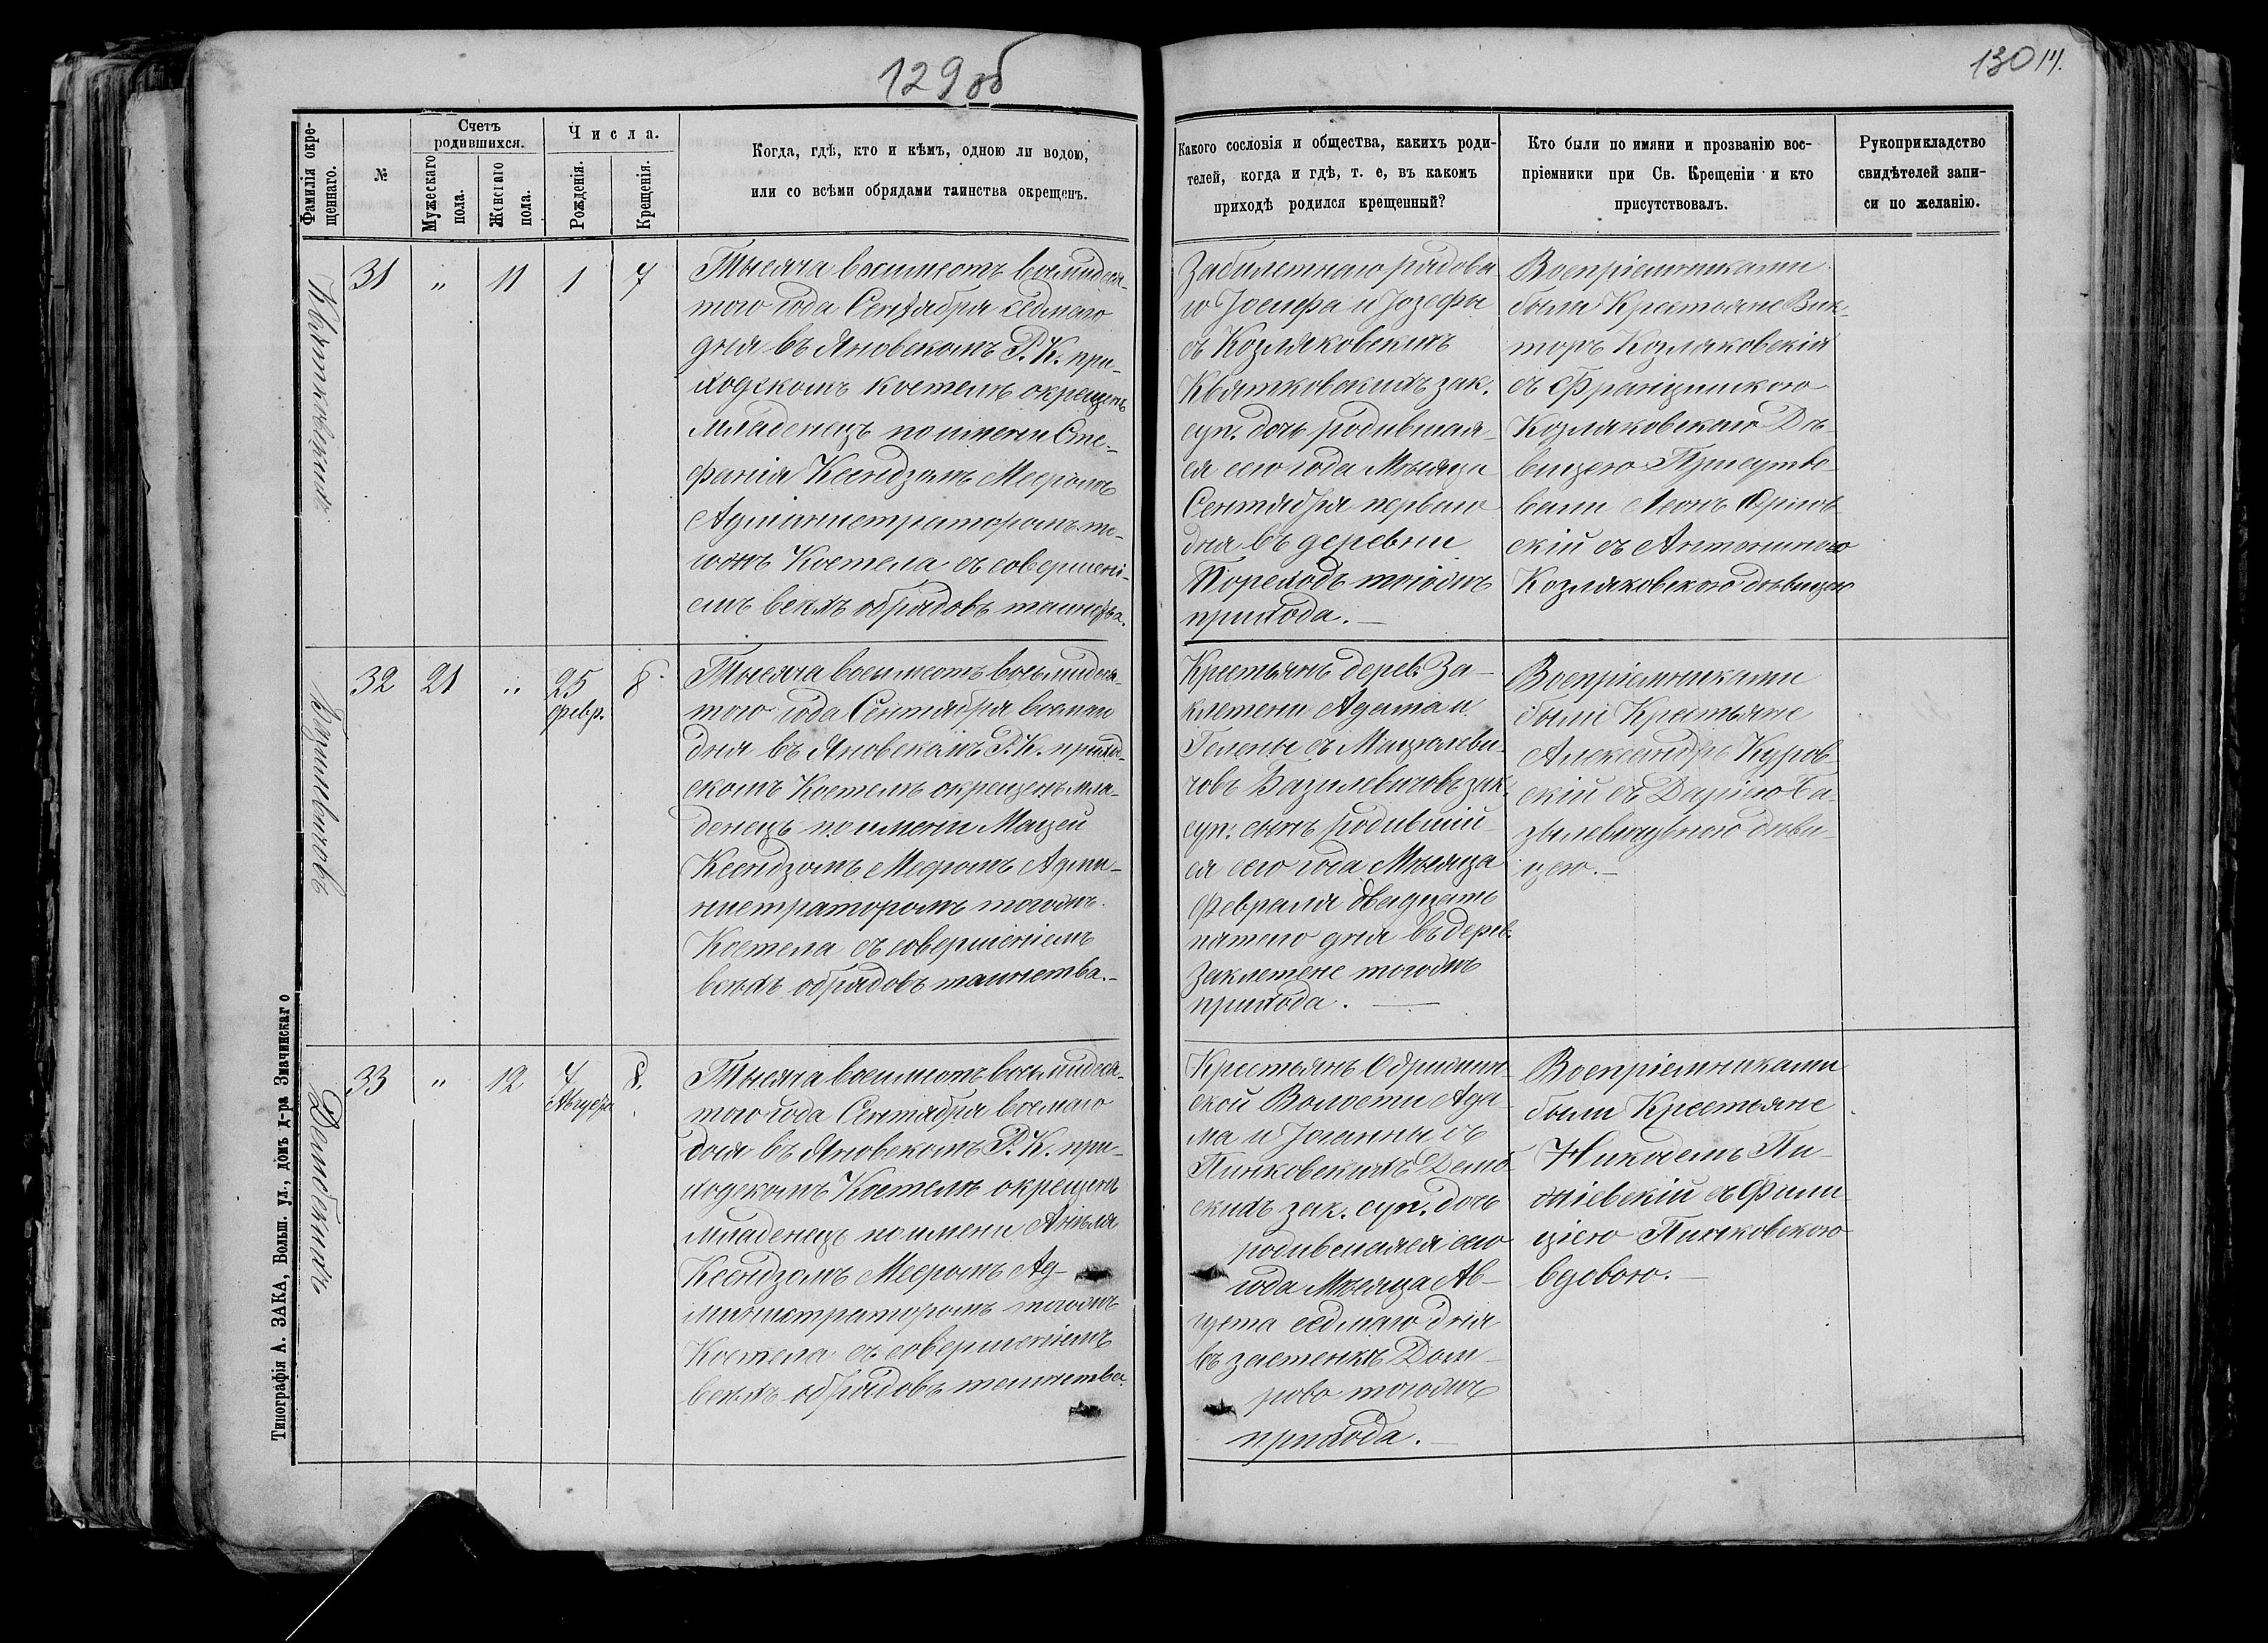 129 об
130
Фамилія окре-
щеннаго.
№
Счетъ
родившихся.
Мужескаго
пола.
Женскаго
пола.
Числа.
Рожденія.
Крещенія.
Когда, гдѣ, кто и кѣмъ, одною ли водою,
или со всѣми обрядами таинства окрещенъ.
Какого сословія и общества, какихъ роди-
телей, когда и гдѣ, т. е, въ какомъ
приходѣ родился крещенный?
Кто были по имяни и прозванію вос-
пріемники при Св. Крещеніи и кто
присутствовалъ.
Рукоприкладство
свидѣтелей запи-
си по желанію.
Квятковскихъ
31
"
11
1
7
Тысяча восимсотъ восмидеся-
того года Сентября седмаго
дня въ Яновскомъ Р. К. при-
ходскомъ костелѣ окрещенъ
младенецъ по имени Сте-
фанія Ксендзомъ Месромъ
Администраторомъ то-
гожъ Костела съ совершені-
емъ всѣхъ обрядовъ таинства.
Забилетнаго рядова-
го Іосифа и Іозефы
съ Козляковскихъ
Квятковскихъ зак.
суп. дочь родившая-
ся сего года Мѣсяца
Сентября перваго
дня въ деревни
Пореходъ тогожъ
прихода.—
Воспріемниками
были Крестьяне Вик-
торъ Козляковскій
съ Францишкою
Козляковскою Дѣ-
вицею Присутво-
вали Леонъ
скій съ Антониною
Козляковскою дѣвицею
Базылевичовъ
32
21
"
25
февр.
8
Тысяча восимсотъ восьмидеся-
того года Сентября восмаго
дня въ Яновскомъ Р. К. приход-
скомъ Костелѣ окрещенъ мла-
денецъ по имени Мацей
Ксендзомъ Месромъ Адми-
нистраторомъ тогожъ
Костела съ совершеніемъ
всѣхъ обрядовъ таинства.—
Крестьянъ дерев. За-
клетени Адама и
Гелены съ Мацюлеви-
човъ Базилевичовъ зак.
суп. сынъ родивший-
ся сего года Мѣсяца
Февраля двадцать
пятого дня въ дерев.
Заклетене тогожъ
прихода.—
Воспріемниками
были Крестьяне
Александръ Куров-
скій съ Даріею Ба-
зылевичувною дѣви-
цею.—
Дембскихъ
33
"
12
7
Августа
8.
Тысяча восимсотъ восьмидеся-
того года Сентября восмаго
дня въ Яновскомъ Р. К. при-
ходскомъ Костелѣ окрещенъ
младенецъ по имени Анѣля
Ксендзомъ Месромъ Ад-
министраторомъ тогожъ
Костела съ совершеніемъ
всѣхъ обрядовъ таинства.
Крестьянъ Одрижин-
ской Волости Ада-
ма и Іоганны съ
Пинковскихъ Демб-
скихъ зак. суп. дочь
родившаяся сего
года Мѣсяца Ав-
густа седмаго дня
въ застенкѣ Дом-
рово тогожъ
прихода.—
Воспріемниками
были Крестьяне
Никодемъ
съ Фили-
ціею Пинковскою
вдовою.—
Типографія А. ЗАКА, Больш. ул., домъ д-ра Змачинскаго